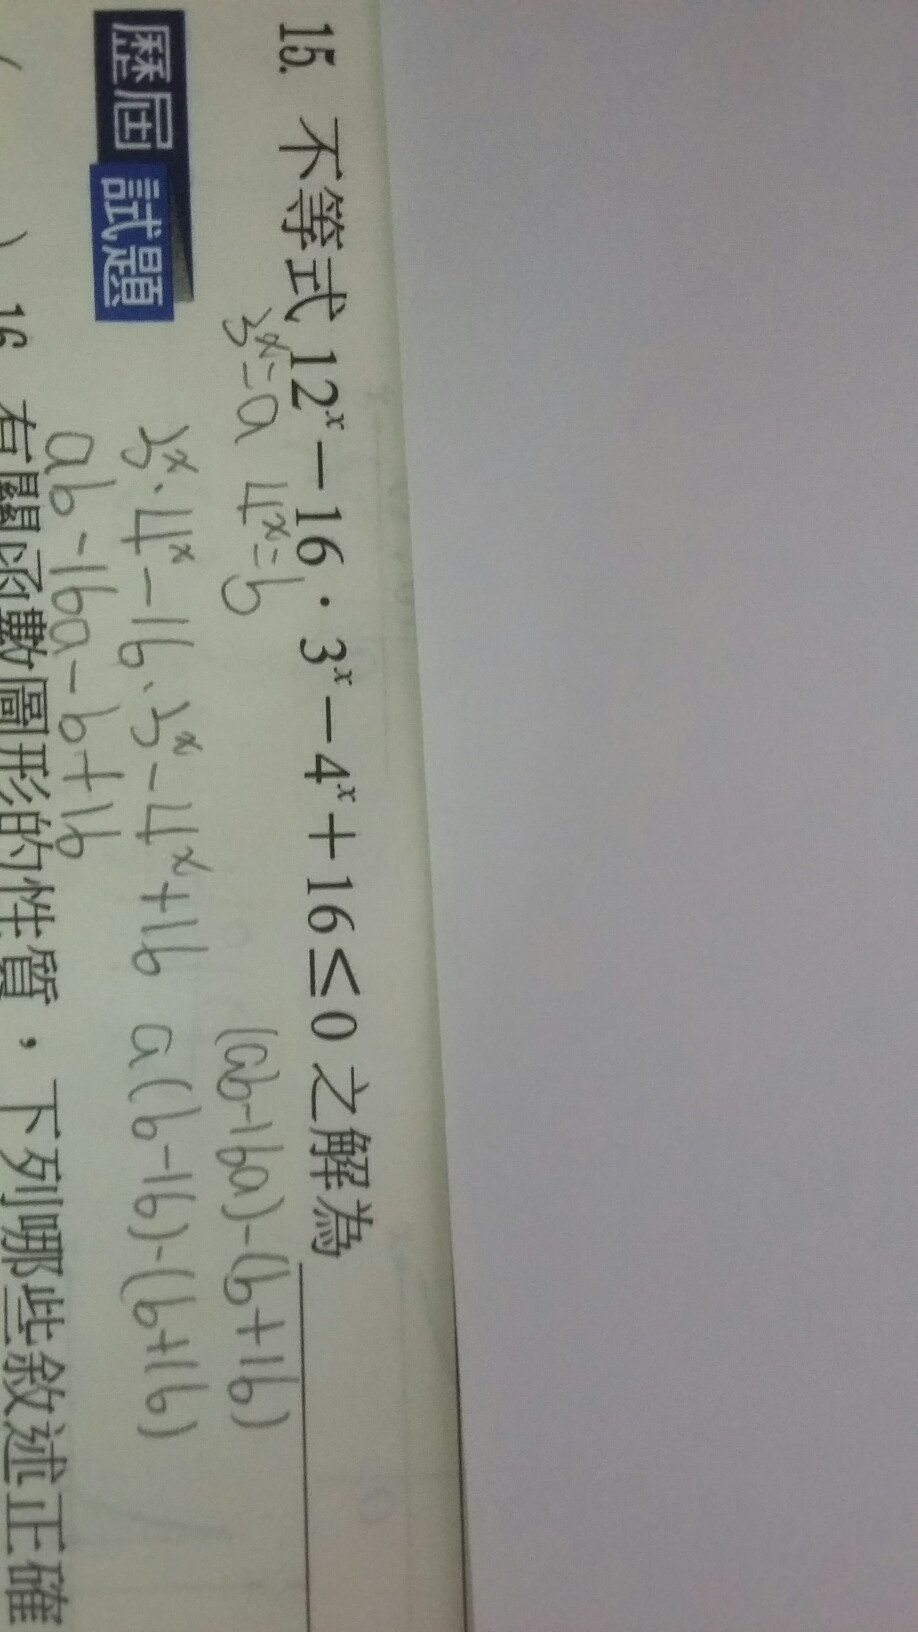 15. 不等式 12ˣ－16‧3ˣ－4ˣ＋16≤0 之解為
3ˣ=a 4ˣ=b
(ab-16a)-(b+16)
3ˣ·4ˣ-16·3ˣ-4ˣ+16
a(b-16)-(b+16)
歷屆試題
ab-16a-b+16
) 16. 有關函數圖形的性質，下列哪些敘述正確